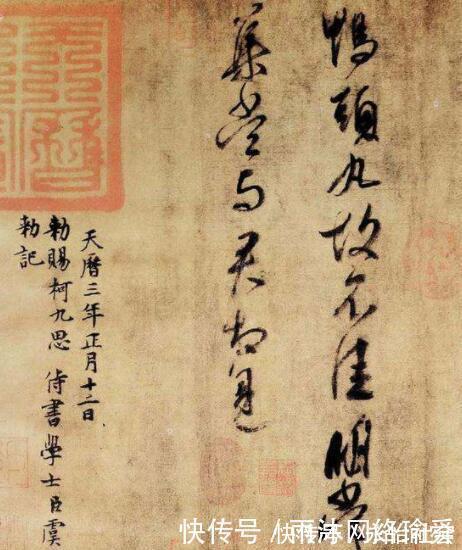 鴨頭丸故不佳明當
集當与君相見
天曆三年正月十二日
勅賜柯九思 侍書學士臣虞
勅記
快传号 /